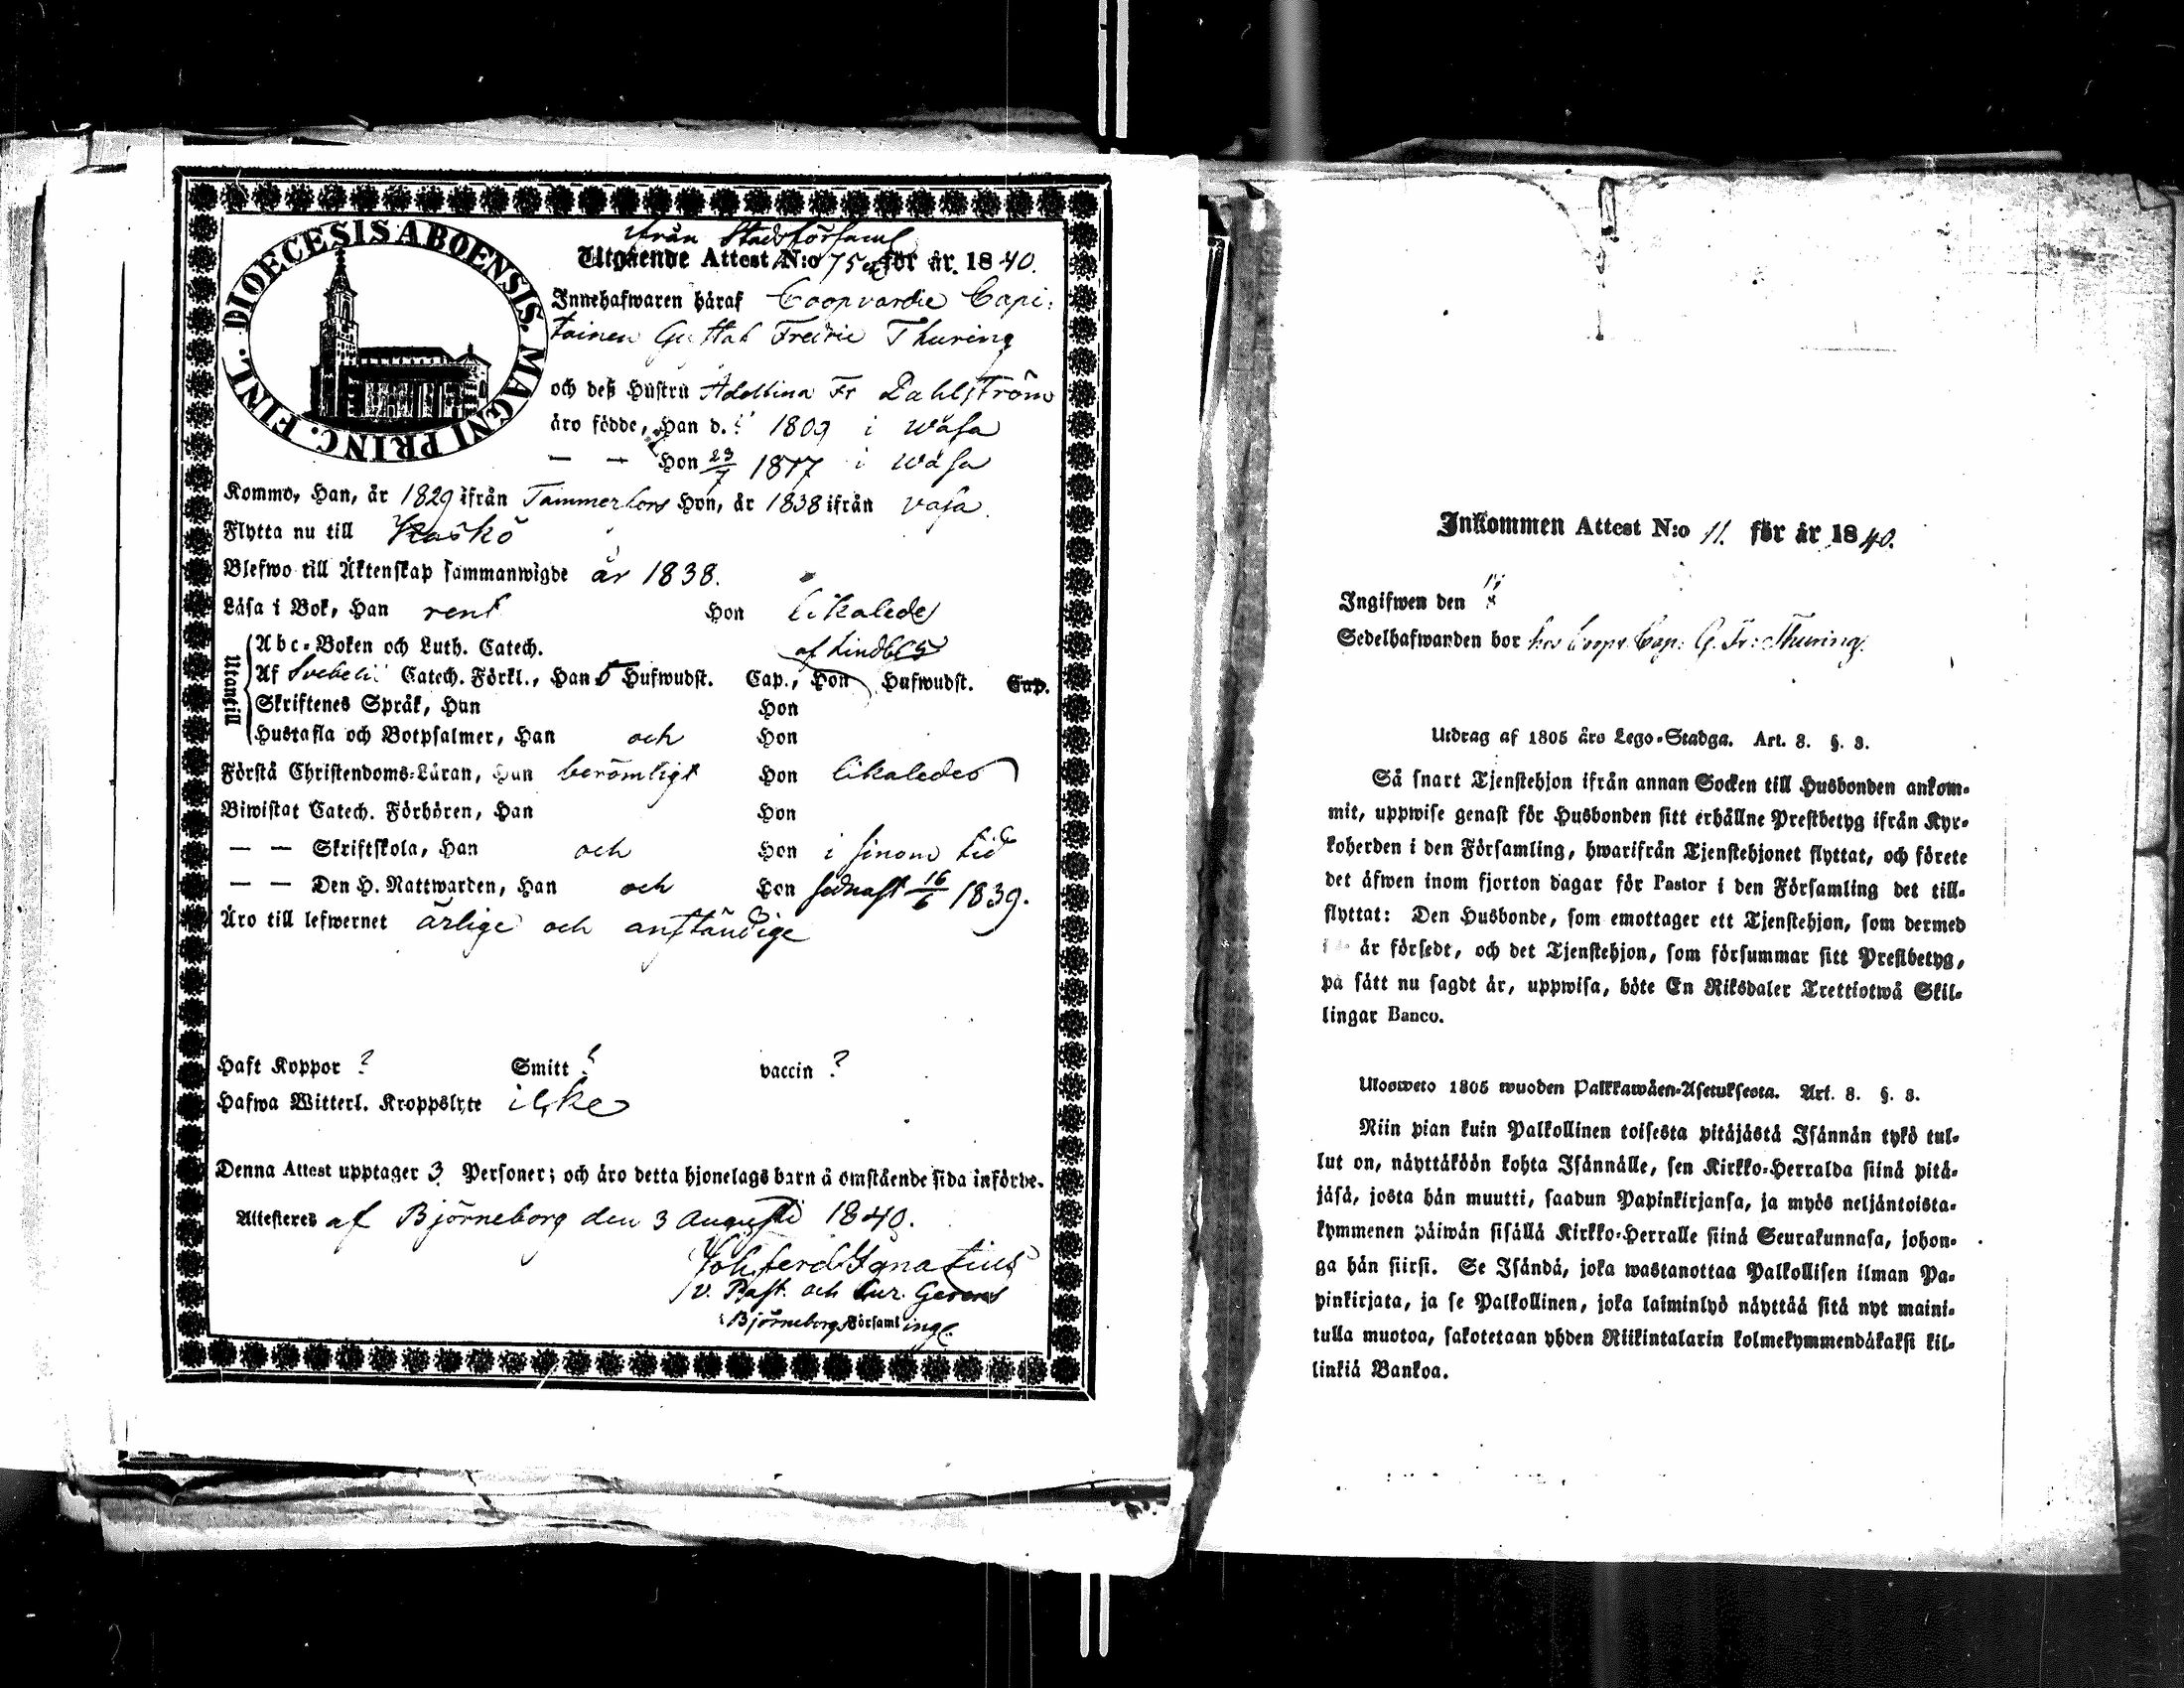 DIOECESIS ABOENSIS. MAGNI PRINC. FINL.
från Stadsförsaml
Utgående Attest N:o 75 för år 1840.
Innehafwaren håraf Coopvardie Capi:
tainen Gustaf Fredric Thuring
och deß Hustru Adolfina Fr Dahlström
äro födde, Han d. 1809 i Wasa
— — Hon 23/7 1817 i Wasa
Kommo, Han, år 1829 ifrån Tammerfors Hon, år 1838 ifrån Vasa.
Flytta nu till Kaskö
Blefwo till Äktenskap sammanwigde år 1838.
Läsa i Bok, Han rent Hon likaledes
Utantill
Abc-Boken och Luth. Catech. af Lindbl
Af Svebelii Catech. Förkl., Han 5 Hufwudst. Cap., Hon Hufwudst. Cap.
Skriftenes Språk, Han Hon
Hustafla och Botpsalmer, Han och Hon
Förstå Christendoms-Läran, Han berömligt Hon likaledes
Biwistat Catech. Förhören, Han Hon
— — Skriftskola, Han och Hon i sinom tid
— — Den H. Nattwarden, Han och Hon sednast 16/6 1839.
Äro till lefwernet ärlige och anständige
Haft Koppor ? Smitt ? vaccin ?
Hafwa Witterl. Kroppslyte icke
Denna Attest upptager 3 Personer; och äro detta hjonelags barn å omstående sida införde.
Attesteres af Björneborg den 3 Augusti 1840.
Joh. Ferd. Ignatius
v. Past. och Cur. Gerens
i Björneborgs Församlingl.
Inkommen Attest N:o 11. för år 1840.
Ingifwen den
Sedelhafwanden bor hos Coopv. Cap: G. Fr: Thuring.
Utdrag af 1805 års Lego-Stadga. Art. 8. §. 3.
Så snart Tjenstehjon ifrån annan Socken till Husbonden ankom-
mit, uppwise genast för Husbonden sitt erhållne Prestbetyg ifrån Kyr-
koherden i den Församling, hwarifrån Tjenstehjonet flyttat, och förete
det äfwen inom fjorton dagar för Pastor i den Församling det till-
flyttat: Den Husbonde, som emottager ett Tjenstehjon, som dermed
är försedt, och det Tjenstehjon, som försummar sitt Prestbetyg,
på sätt nu sagdt är, uppwisa, böte En Riksdaler Trettiotwå Skil-
lingar Banco.
Ulosweto 1805 wuoden Palkkawäen-Asetuksesta. Art. 8. §. 3.
Niin pian kuin Palkollinen toisesta pitäjästä Isännän tykö tul-
lut on, näyttäköön kohta Isännälle, sen Kirkko-Herralda siinä pitä-
jäsä, josta hän muutti, saadun Papinkirjansa, ja myös neljäntoista-
kymmenen päiwän sisällä Kirkko-Herralle siinä Seurakunnasa, johon-
ga hän siirsi. Se Isändä, joka wastanottaa Palkollisen ilman Pa-
pinkirjata, ja se Palkollinen, joka laiminlyö näyttää sitä nyt maini-
tulla muotoa, sakotetaan yhden Riikintalarin kolmekymmendäkaksi kil-
linkiä Bankoa.